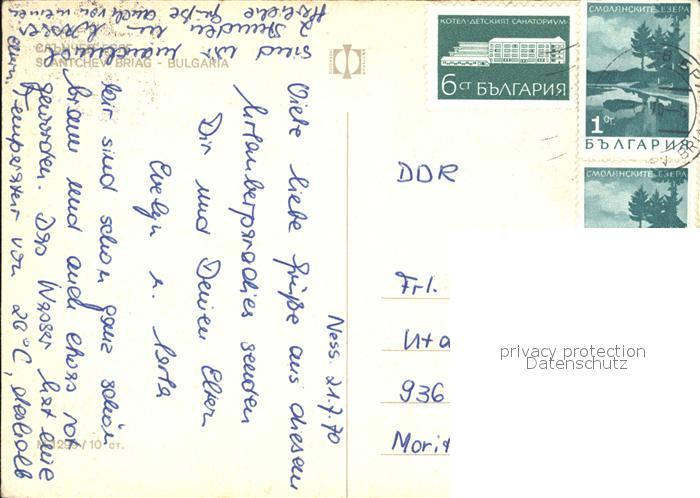 КОТЕЛ-ДЕТСКИЯТ САНАТОРИУМ
6 СТ БЪЛГАРИЯ
СМОЛЯНСКИТЕ ЕЗЕРА
1 СТ.
БЪЛГАРИЯ
СМОЛЯНСКИТЕ ЕЗЕРА
SLANTCHEV BRIAG - BULGARIA
/ 10 СТ.
Ness. 21.7.70
Viele liebe Grüße aus diesem
senden
Dir und Deinen Eltern
Evelyn u.
Wir sind schon ganz schön
braun und auch etwas rot
geworden. Das Wasser hat eine
Temperatur von 26°C, deshalb
sind wir manchmal
2 Stunden im Wasser
Herzliche Grüße auch von meinen
Eltern.
DDR
Frl.
Uta
936
Morit
privacy protection
Datenschutz